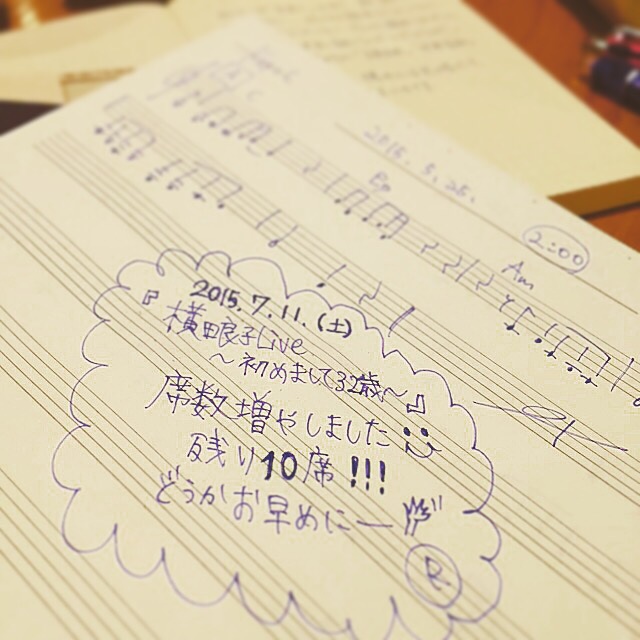 2015.5.25.
2:00
Am
2015.7.11.(土)
『横田良子Live
〜初めまして32歳〜』
席数増やしました
残り10席!!!
どうかお早めにー
R